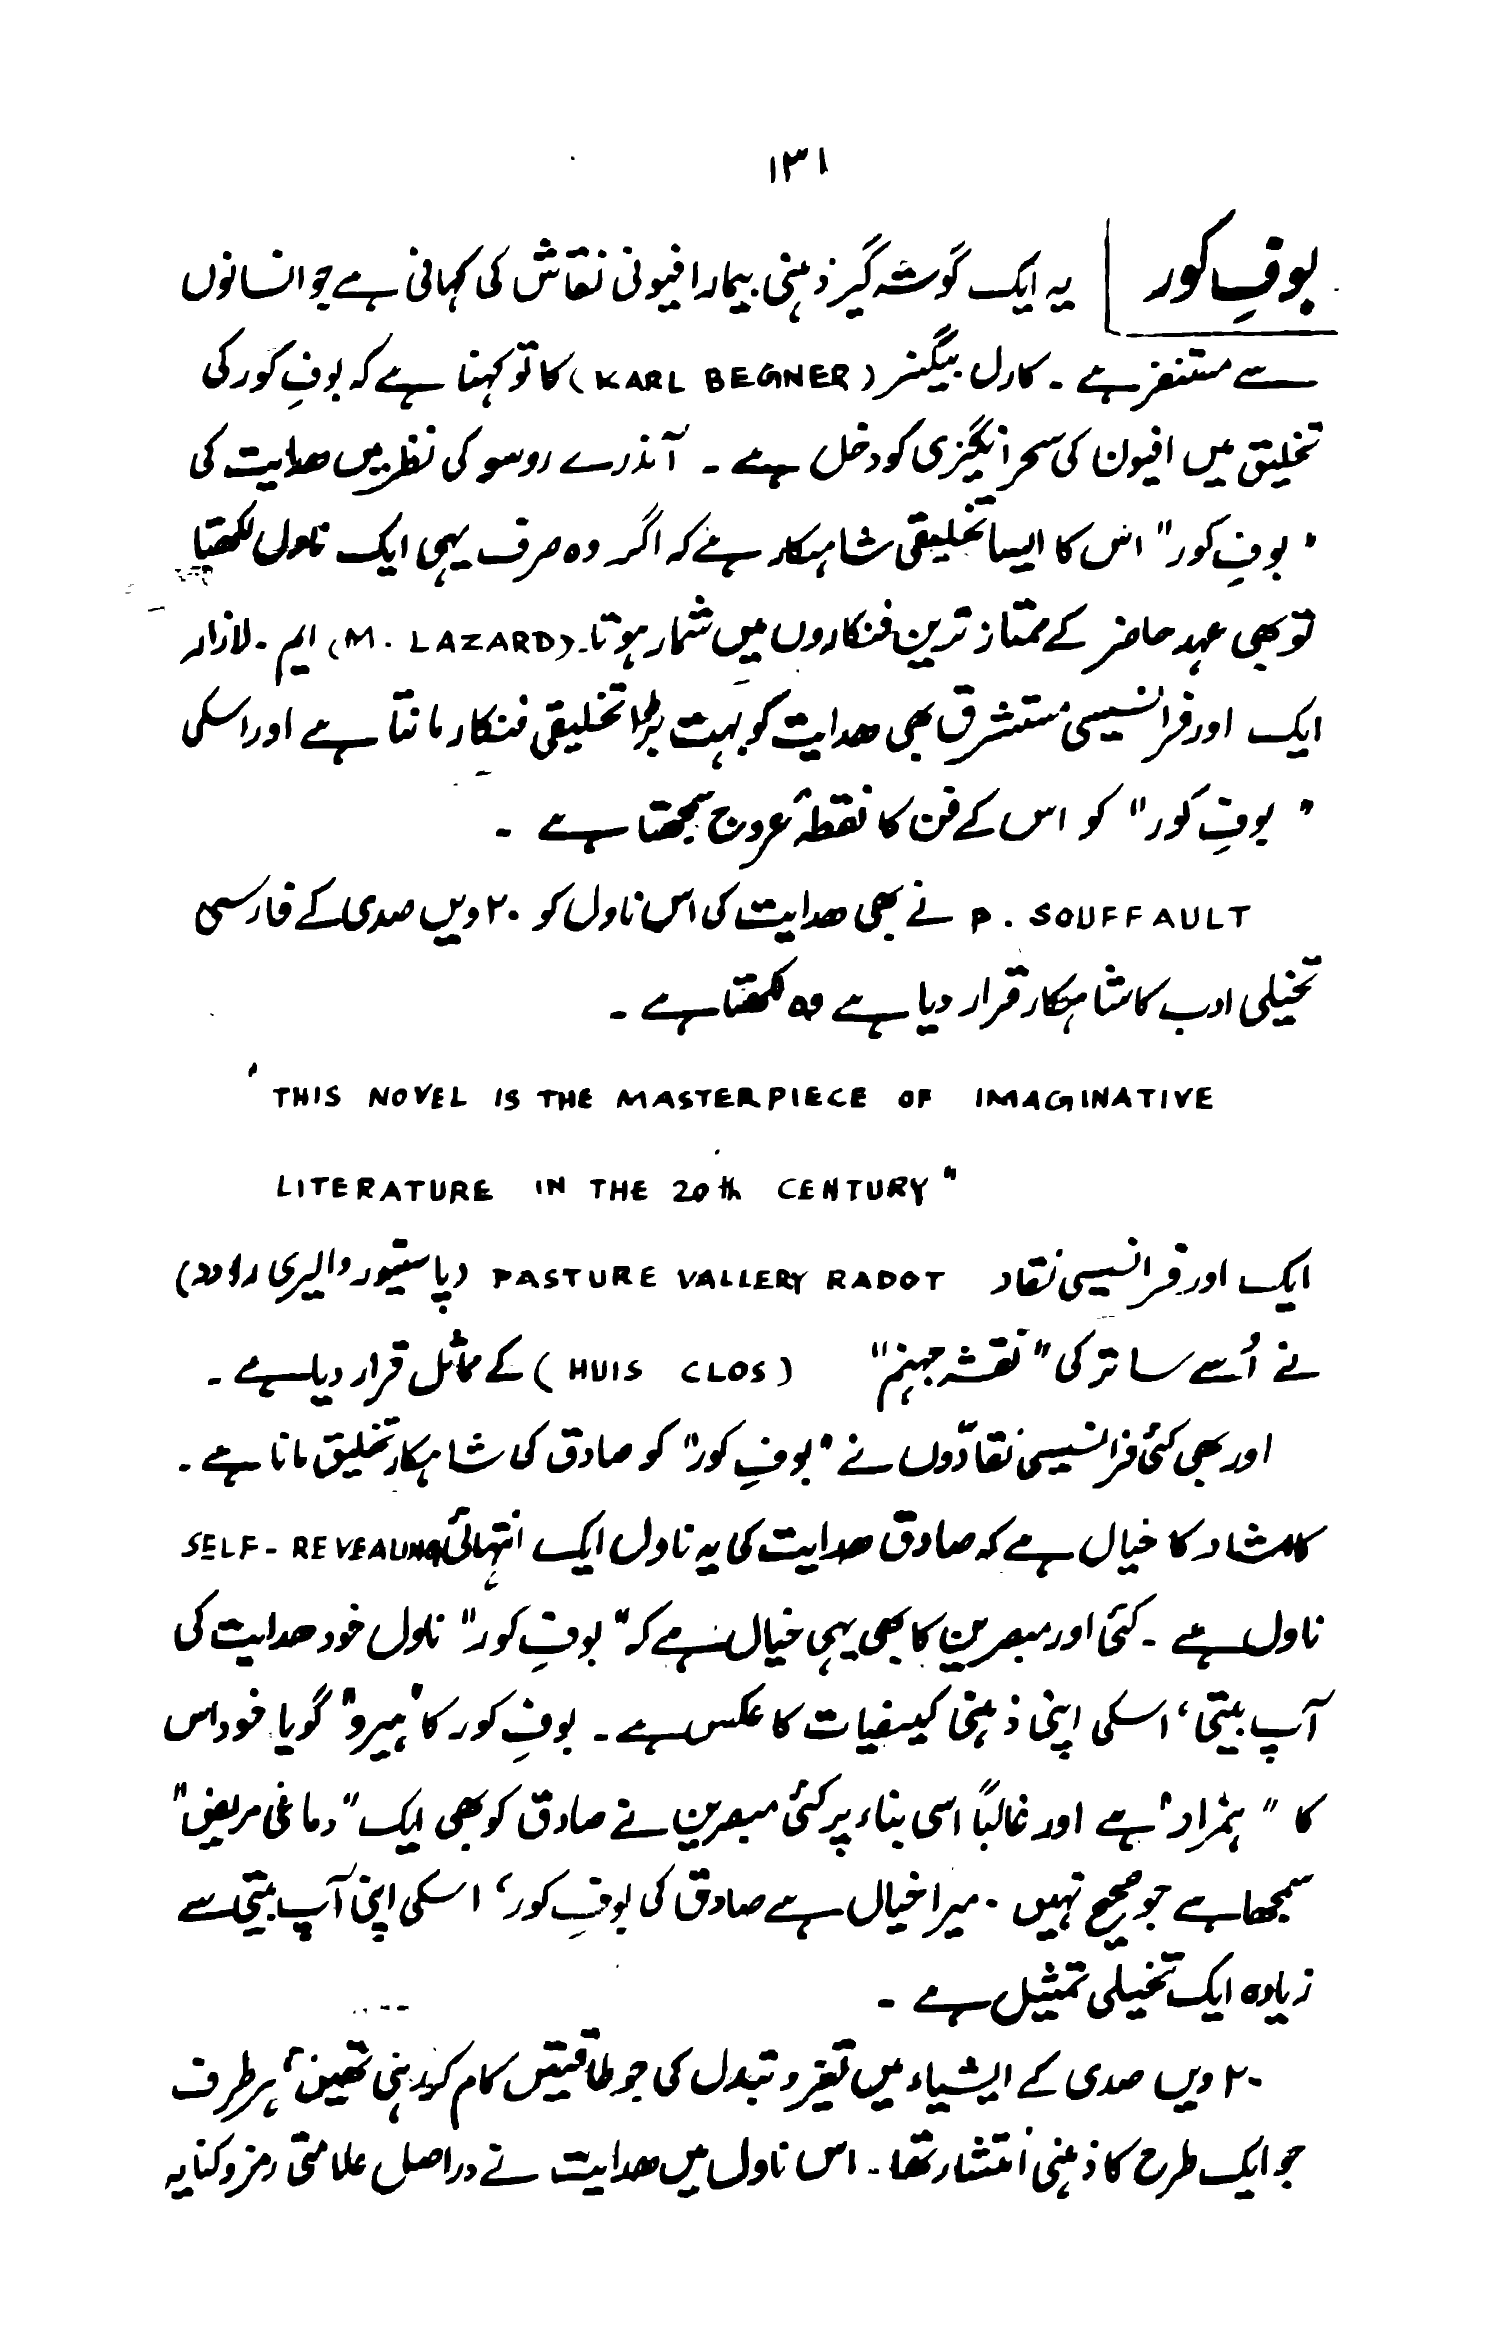 ۱۳۱
بوفِ کور | یہ ایک گوشہ گیر ذہنی بیمار افیونی نقاش کی کہانی ہے جو انسانوں
سے متنفر ہے ۔ کارل بیگنر (KARL BEGNER) کا تو کہنا ہے کہ بوفِ کور کی
تخلیق میں افیون کی سحر انگیزی کو دخل ہے ۔ آندرے روسو کی نظر میں ھدایت کی
" بوفِ کور" اس کا ایسا تخلیقی شاہکار ہے کہ اگر وہ صرف یہی ایک ناول لکھتا
تو بھی عہد حاضر کے ممتاز ترین فنکاروں میں شمار ہوتا۔ (M. LAZARD) ایم ۔ لازار
ایک اور فرانسیسی مستشرق بھی ھدایت کو بہت بڑا تخلیقی فنکار مانتا ہے اور اسکی
" بوفِ کور" کو اس کے فن کا نقطۂ عروج سمجھتا ہے ۔
P. SOUFFAULT نے بھی ھدایت کی اس ناول کو ۲۰ ویں صدی کے فارسی
تخیلی ادب کا شاہکار قرار دیا ہے وہ لکھتا ہے ۔
' THIS NOVEL IS THE MASTERPIECE OF IMAGINATIVE
LITERATURE IN THE 20th CENTURY "
ایک اور فرانسیسی نقاد PASTURE VALLERY RADOT (پاستیور والیری رادو)
نے اُسے سارتر کی "نقشہ جہنم" (HUIS CLOS) کے مماثل قرار دیا ہے ۔
اور بھی کئی فرانسیسی نقادّوں نے "بوفِ کور" کو صادق کی شاہکار تخلیق مانا ہے ۔
کامشاد کا خیال ہے کہ صادق ھدایت کی یہ ناول ایک انتہائی SELF - REVEALING
ناول ہے ۔ کئی اور مبصرین کا بھی یہی خیال ہے کہ "بوفِ کور" ناول خود ھدایت کی
آپ بیتی، اسکی اپنی ذہنی کیفیات کا عکس ہے ۔ بوفِ کور کا "ہیرو" گویا خود اس
کا " ہمزاد" ہے اور غالباً اسی بناء پر کئی مبصرین نے صادق کو بھی ایک "دماغی مریض"
سمجھا ہے جو صحیح نہیں ۔ میرا خیال ہے صادق کی بوفِ کور، اسکی اپنی آپ بیتی سے
زیادہ ایک تخیلی تمثیل ہے ۔
۲۰ ویں صدی کے ایشیاء میں تغیر و تبدل کی جو طاقتیں کام کر رہی تھیں، ہر طرف
جو ایک طرح کا ذہنی انتشار تھا ۔ اس ناول میں ھدایت نے دراصل علامتی رمز و کنایہ